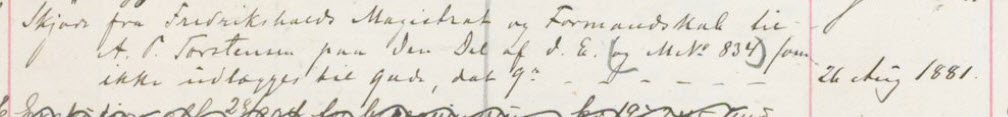 Skjøde fra Fredrikshalds Magistrat og Formandskab til
A. P. Torstensen paa den Del af d. E. (og MNº 834) som
ikke udlægges til gade, dat 9de - - - - - - 26 Aug 1881.